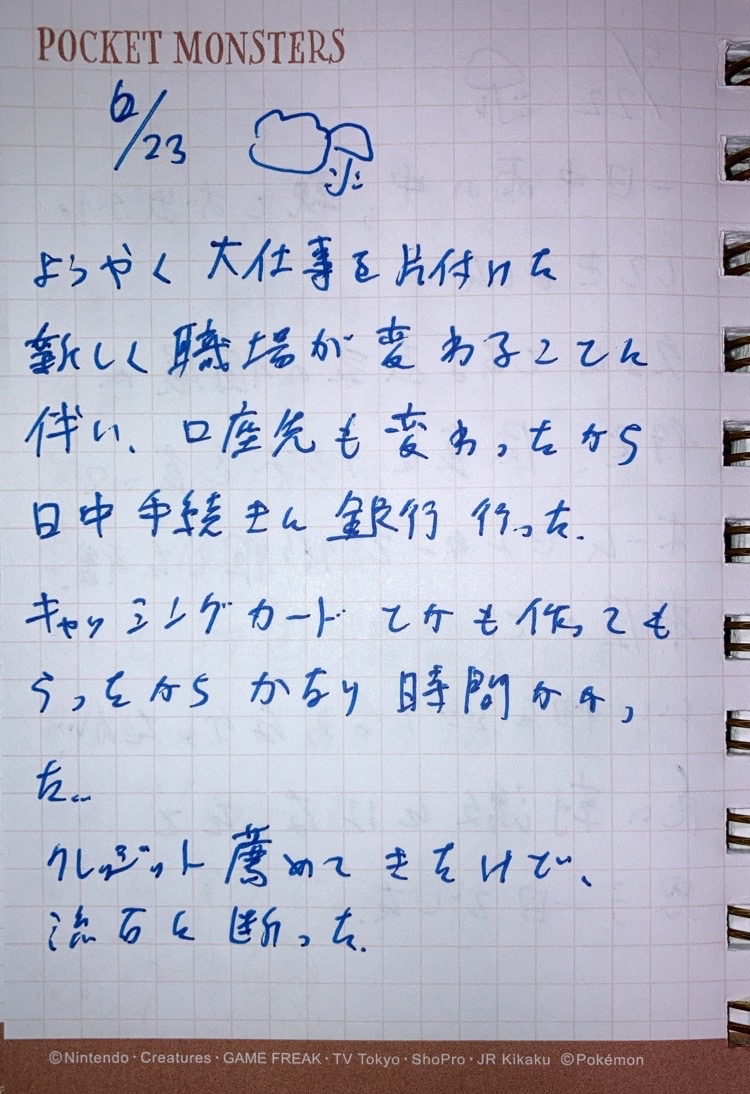 POCKET MONSTERS
6/23
ようやく 大仕事を片付けた
新しく 職場が 変わることに
伴い、口座先も変わったから
日中 手続きに 銀行 行った.
キャッシングカード とかも作っても
らったから かなり 時間かかっ
た..
クレジット 薦めてきたけど、
流石に断った.
©Nintendo・Creatures・GAME FREAK・TV Tokyo・ShoPro・JR Kikaku ©Pokémon